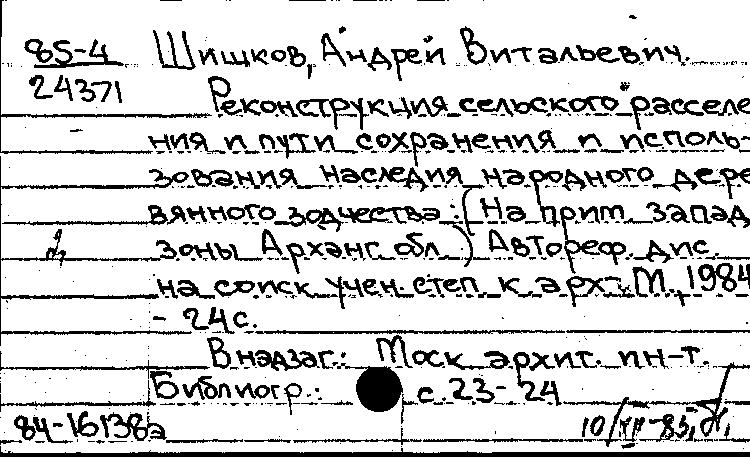 85-4
24371
Шишков, Андрей Витальевич.
Реконструкция сельского расселе
ния и пути сохранения и исполь-
зования наследия народного дере
вянного зодчества: (На прим. запад.
зоны Арханг. обл.) Автореф. дис.
на соиск учен. степ. к. арх. М., 1984
- 24 с.
В надзаг.: Моск архит. ин-т.
Библиогр.: с. 23-24
84-16138а
10/XII-85,